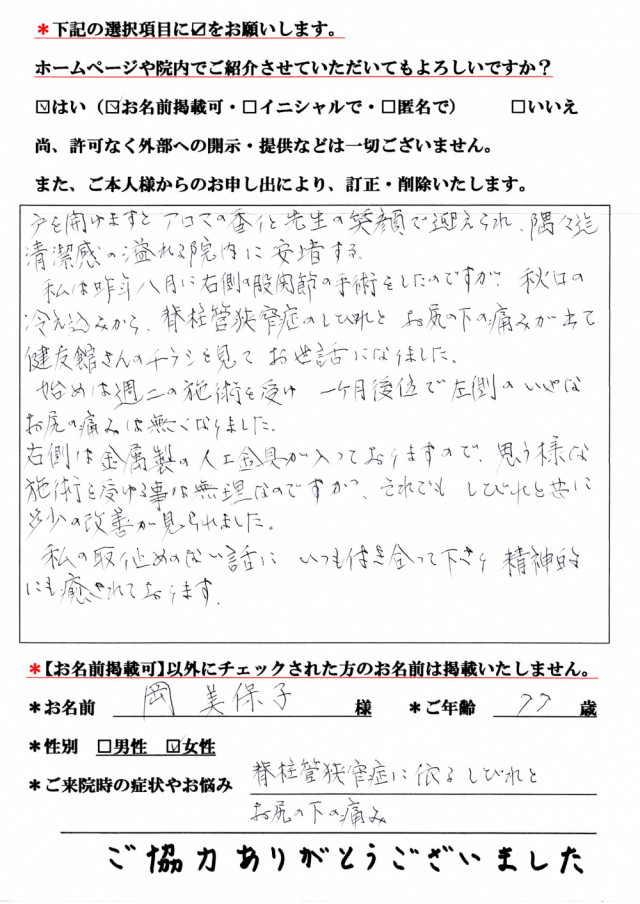 ＊下記の選択項目に☑をお願いします。
ホームページや院内でご紹介させていただいてもよろしいですか？
☑はい（☑お名前掲載可・□イニシャルで・□匿名で）　□いいえ
尚、許可なく外部への開示・提供などは一切ございません。
また、ご本人様からのお申し出により、訂正・削除いたします。
戸を開けますとアロマの香りと先生の笑顔で迎えられ、隅々迄
清潔感の溢れる院内に安堵する。
私は昨年八月に右側の股関節の手術をしたのですが、秋口の
冷え込みから、脊柱管狭窄症のしびれと お尻の下の痛みが出て
健友館さんのチラシを見て お世話になりました。
始めは週二の施術を受け 一ケ月後位で左側のいやな
お尻の痛みは無くなりました。
右側は金属製の人工金具が入っておりますので、思う様な
施術を受ける事は無理なのですが、それでも しびれと共に
多少の改善が見られました。
私の取り止めのない話に いつも付き合って下さり 精神的
にも癒されております。
＊【お名前掲載可】以外にチェックされた方のお名前は掲載いたしません。
＊お名前　岡 美保子　様　＊ご年齢　77　歳
＊性別　□男性　☑女性
＊ご来院時の症状やお悩み　脊柱管狭窄症に依るしびれと
お尻の下の痛み
ご協力ありがとうございました